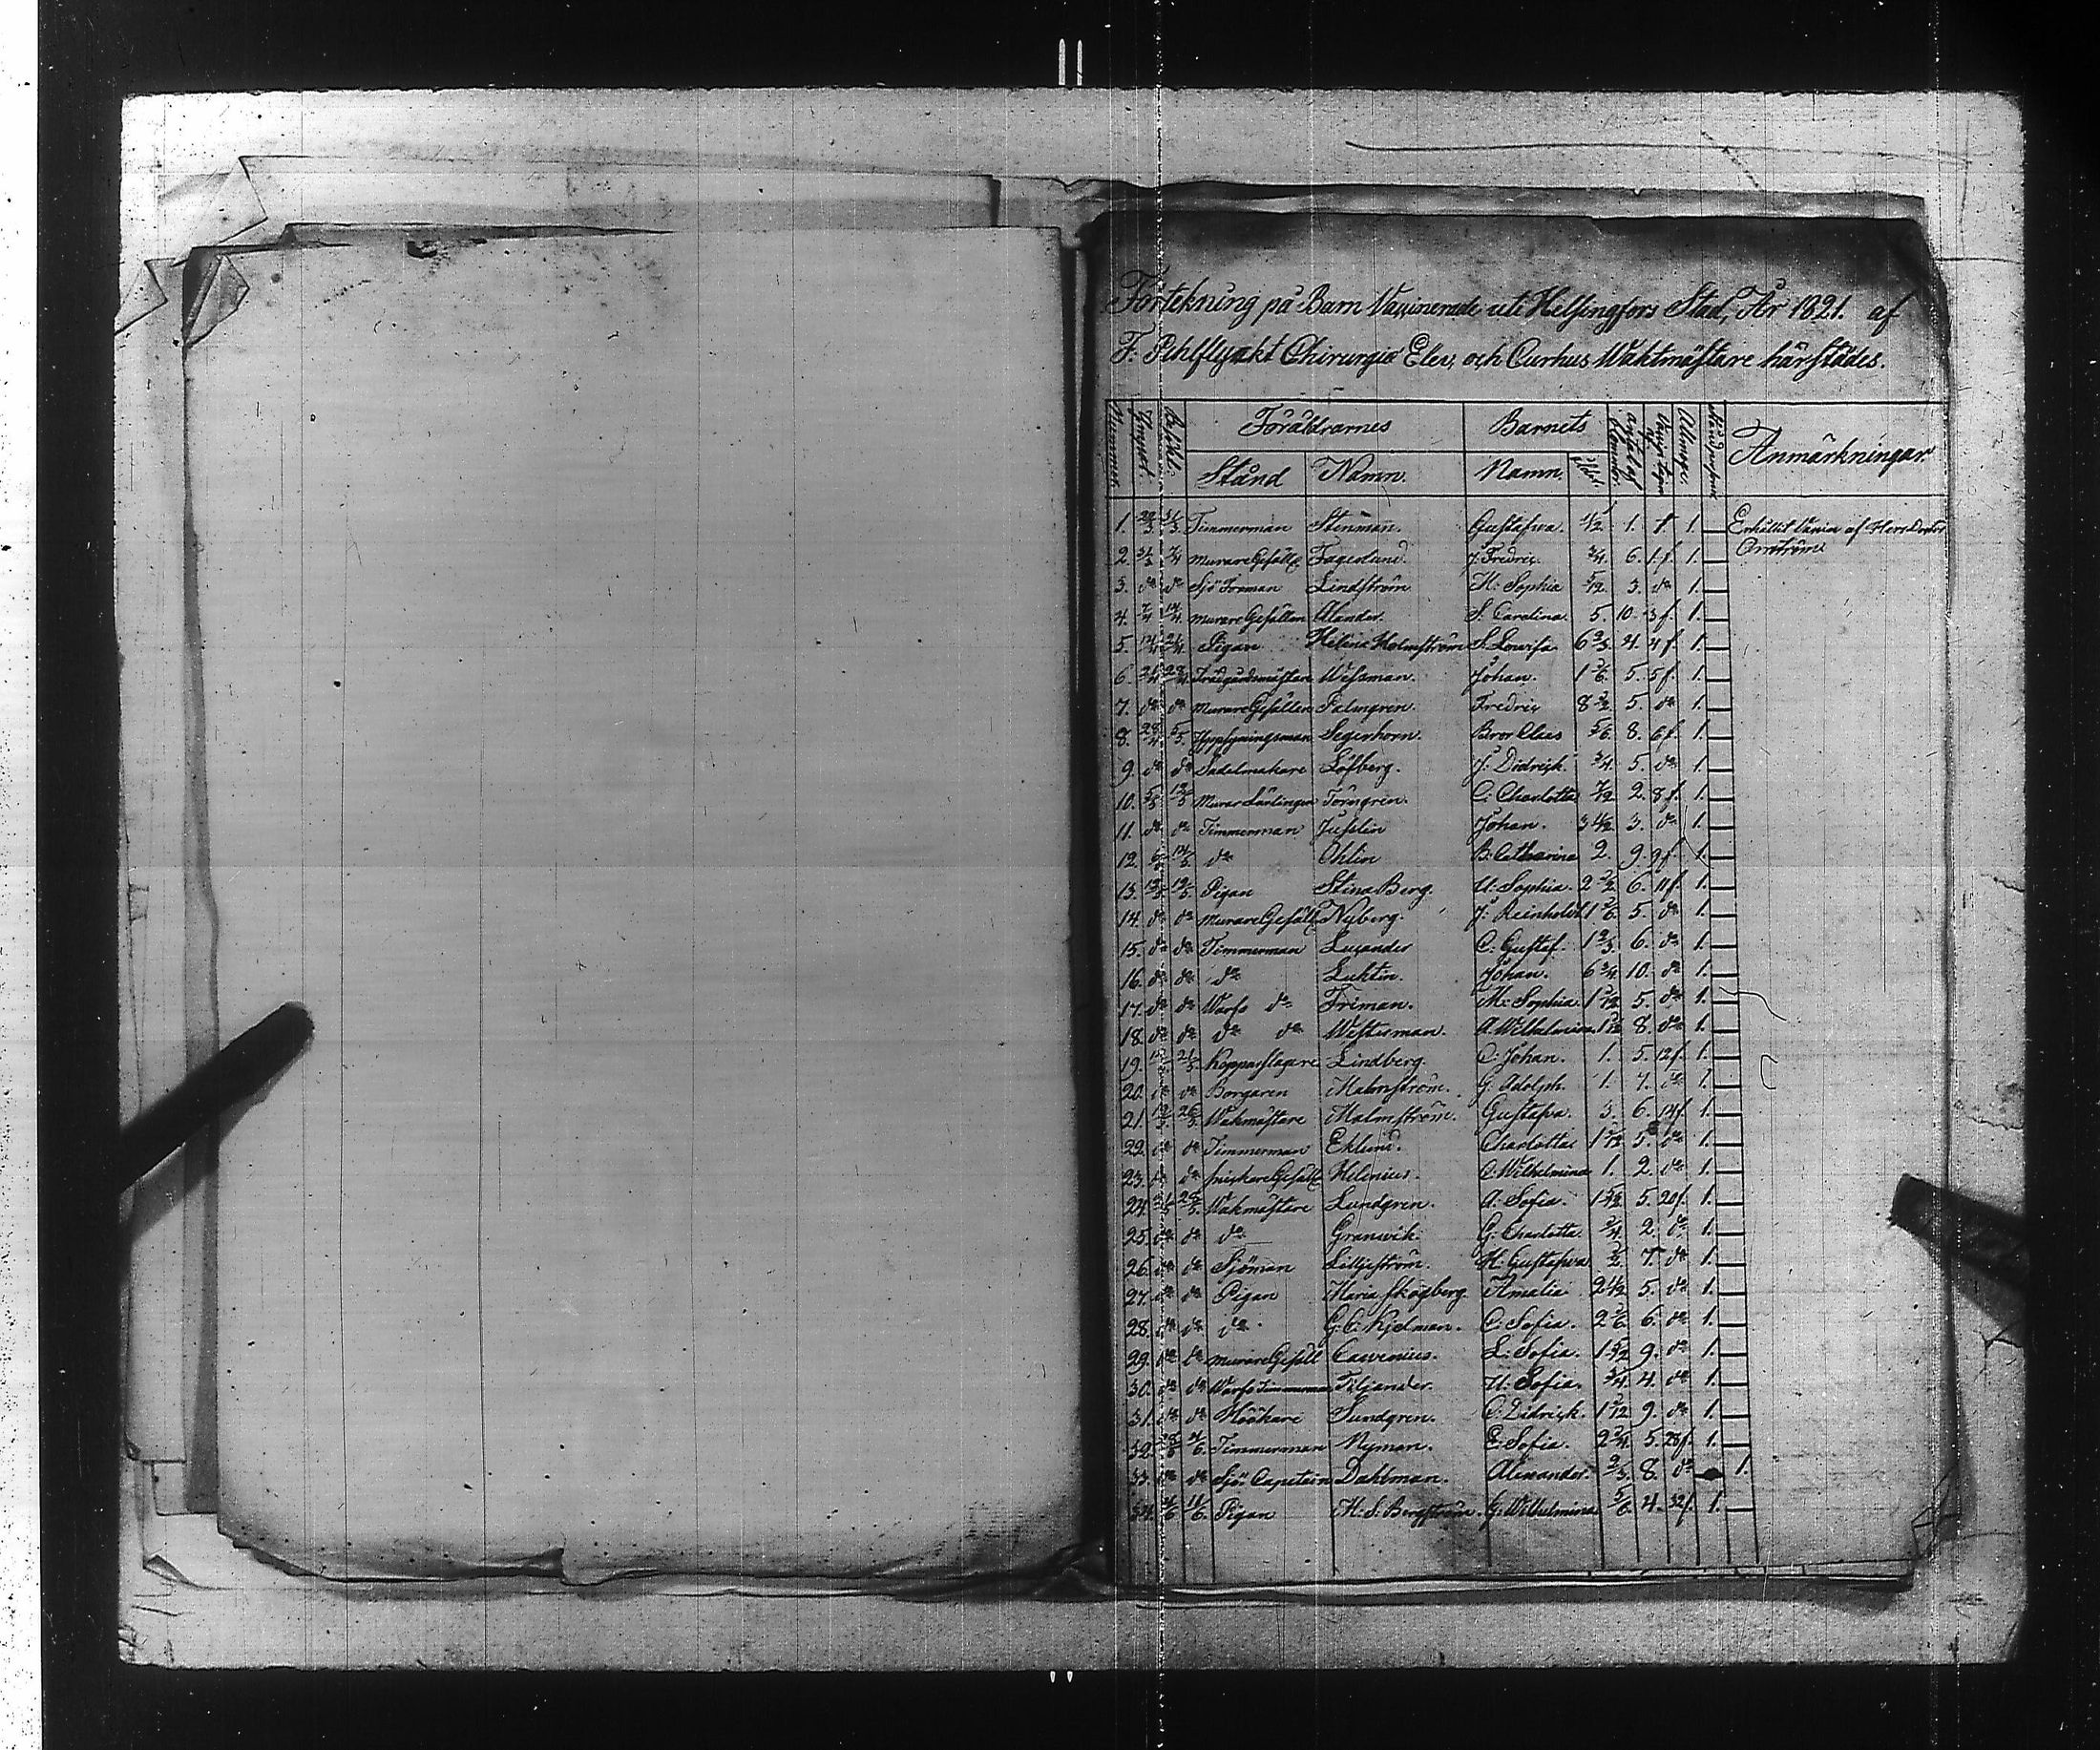 Förtekning på Barn Vaccinerade uti Helsingfors Stad, År 1821. af
F. Pihlflyckt Chirurgie Elev, och Curhus Waktmästare härstädes.
Nummer. Ympat. Besikt. Föräldrarnes Barnets Anmärkningar
Stånd Namn. Namn.
1. Timmerman Stenman. Gustafva. 1/2 1. 1. 1. — Erhållit Vaccin af Herr Doctor
2. 31/3 7/4 Murare Gesäll Fagerlund. J: Fredric 3/4 6. 1.f. 1. —
3. do do Lindström H: Sophia 5/12 3. do 1. —
4. 7/4 14/4 Murare Gesällen Alander. S. Carolina. 5. 10. 3f. 1. —
5. 14/4 21/4 Pigan Helena Holmström S. Lovisa 6 2/3 4. 4f. 1. —
6. 21/4 28/4 Trädgårdsmästare Wessman. Johan. 1 5. 5f. 1. —
7. do do Murare Gesällen Palmgren. Fredric 8 1/2 5. do 1. —
8. 28/4 5/5 Uppsyningsman Segerhorn. Bror Claes 5/6 8. 6f. 1. —
9. do do Sadelmakare Löfberg. J: Didrick 3/4 5. do 1. —
10. 5/5 12/5 Murar Lärlingen Törngren. C: Charlotta 7/12 2. 8f. 1. —
11. do do Timmerman Jusslin Johan. 3 1/2 3. do 1. —
12. do Ohlin B. Catharina 2. 9. 9f. 1. —
13. 12/5 19/5 Pigan Stina Berg. U: Sophia. 2 1/2 6. 11f. 1. —
14. do do Murare Gesäll Nyberg. J: Reinhold 1 5. do 1. —
15. do do Timmerman Lucander C: Gustaf. 1 2/3 6. do 1. —
16. do do do Luhtin. Johan. 6 3/4 10. do 1. —
17. do do Warfs do Friman. M: Sophia. 1 5. do 1. —
18. do do do do Westerman. A. Wilhelmina 1 8. do 1. —
19. Kopparslagare Lindberg. C: Johan. 1. 5. 12f. 1. —
20. do do Borgaren Malmström. G: Adolph. 1. 7. do 1. —
21. 19/5 26/5 Wakmästare Malmström. Gustafva. 3. 6. 14f. 1. —
22. do do Timmerman Eklund. Charlotta 1 5. do 1. —
23. do do Snickare Gesäll Helenius. C: Wilhelmina 1. 2. do 1. —
24. 21/5 28/5 Wakmästare Lundgren. A: Sofia. 1 5. 20f. 1. —
25. do do do Granwik. G: Charlotta. 3/4 2. do 1. —
26. do do Sjöman Lilljeström. H: Gustafva 1/2 7. do 1. —
27. do do Pigan Maria Skogberg. Amalia. 2 1/2 5. do 1. —
28. do do do G: C: Kjelman. C: Sofia. 2 6. do 1. —
29. do do Murare Gesäll Cavenius. L: Sofia. 1 9. do 1. —
30. do do Warfs Timmerman Tiljander. U: Sofia. 3/4 4. do 1. —
31. do do Hökare Sundgren. C: Didrick. 1 9. do 1. —
32. 28/5 4/6 Timmerman Nyman. E: Sofia. 2 5. 28f. 1. —
33. do do Sjö Capitein Dahlman. Alexander. 2/3 8. do — 1.
34. 4/6 11/6 Pigan M: S: Bergström. G: Wilhelmina 5/6 4. 32f. 1. —